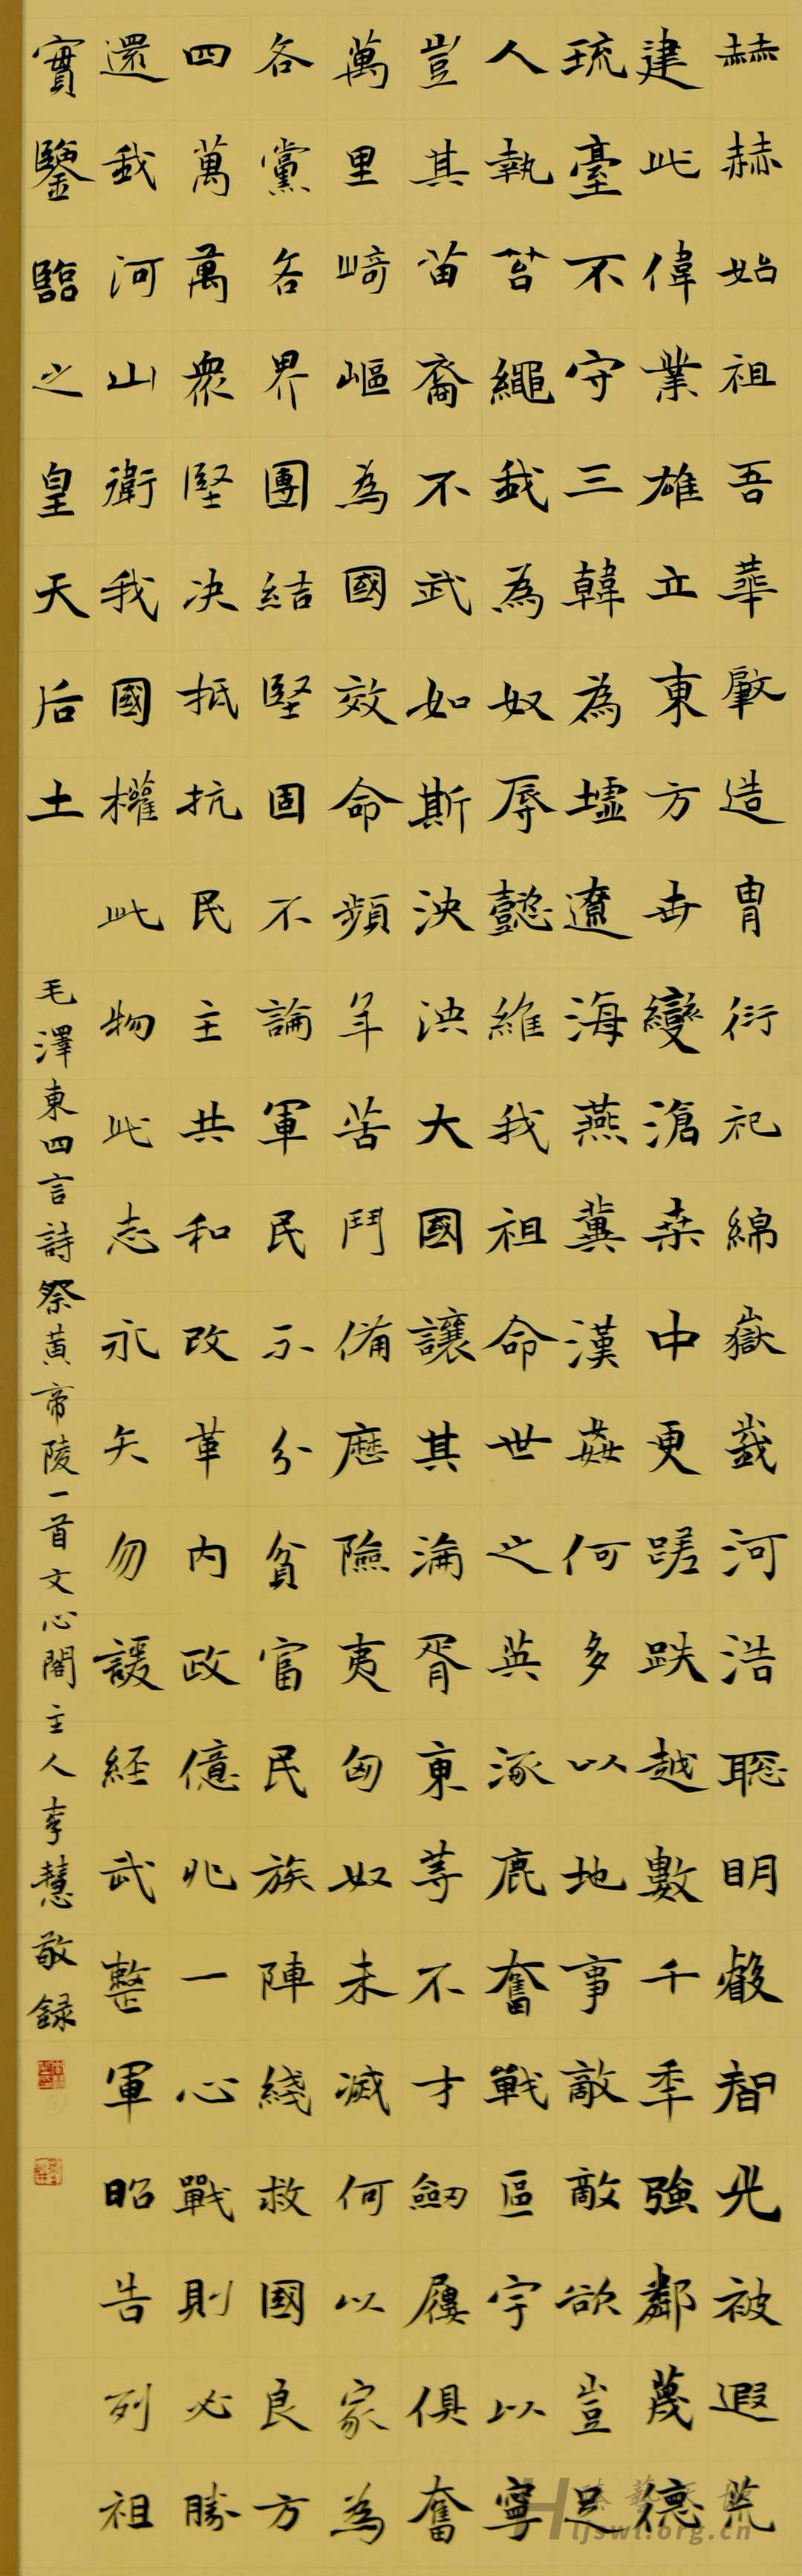 赫赫始祖吾華肇造胄衍祀綿嶽峩河浩聰明睿智光被遐荒
建此偉業雄立東方世變滄桑中更蹉跌越數千年強鄰蔑德
琉臺不守三韓為墟遼海燕冀漢姦何多以地事敵敵欲豈足
人執笞繩我為奴辱懿維我祖命世之英涿鹿奮戰區宇以寧
豈其苗裔不武如斯泱泱大國讓其淪胥東等不才劒屨俱奮
萬里崎嶇為國效命頻年苦鬥備歷險夷匈奴未滅何以家為
各黨各界團結堅固不論軍民不分貧富民族陣綫救國良方
四萬萬衆堅决抵抗民主共和改革內政億兆一心戰則必勝
還我河山衛我國權此物此志永矢勿諼經武整軍昭告列祖
實鑒臨之皇天后土
毛澤東四言詩祭黄帝陵一首文心閣主人李慧敬録
ljswl.org.cn